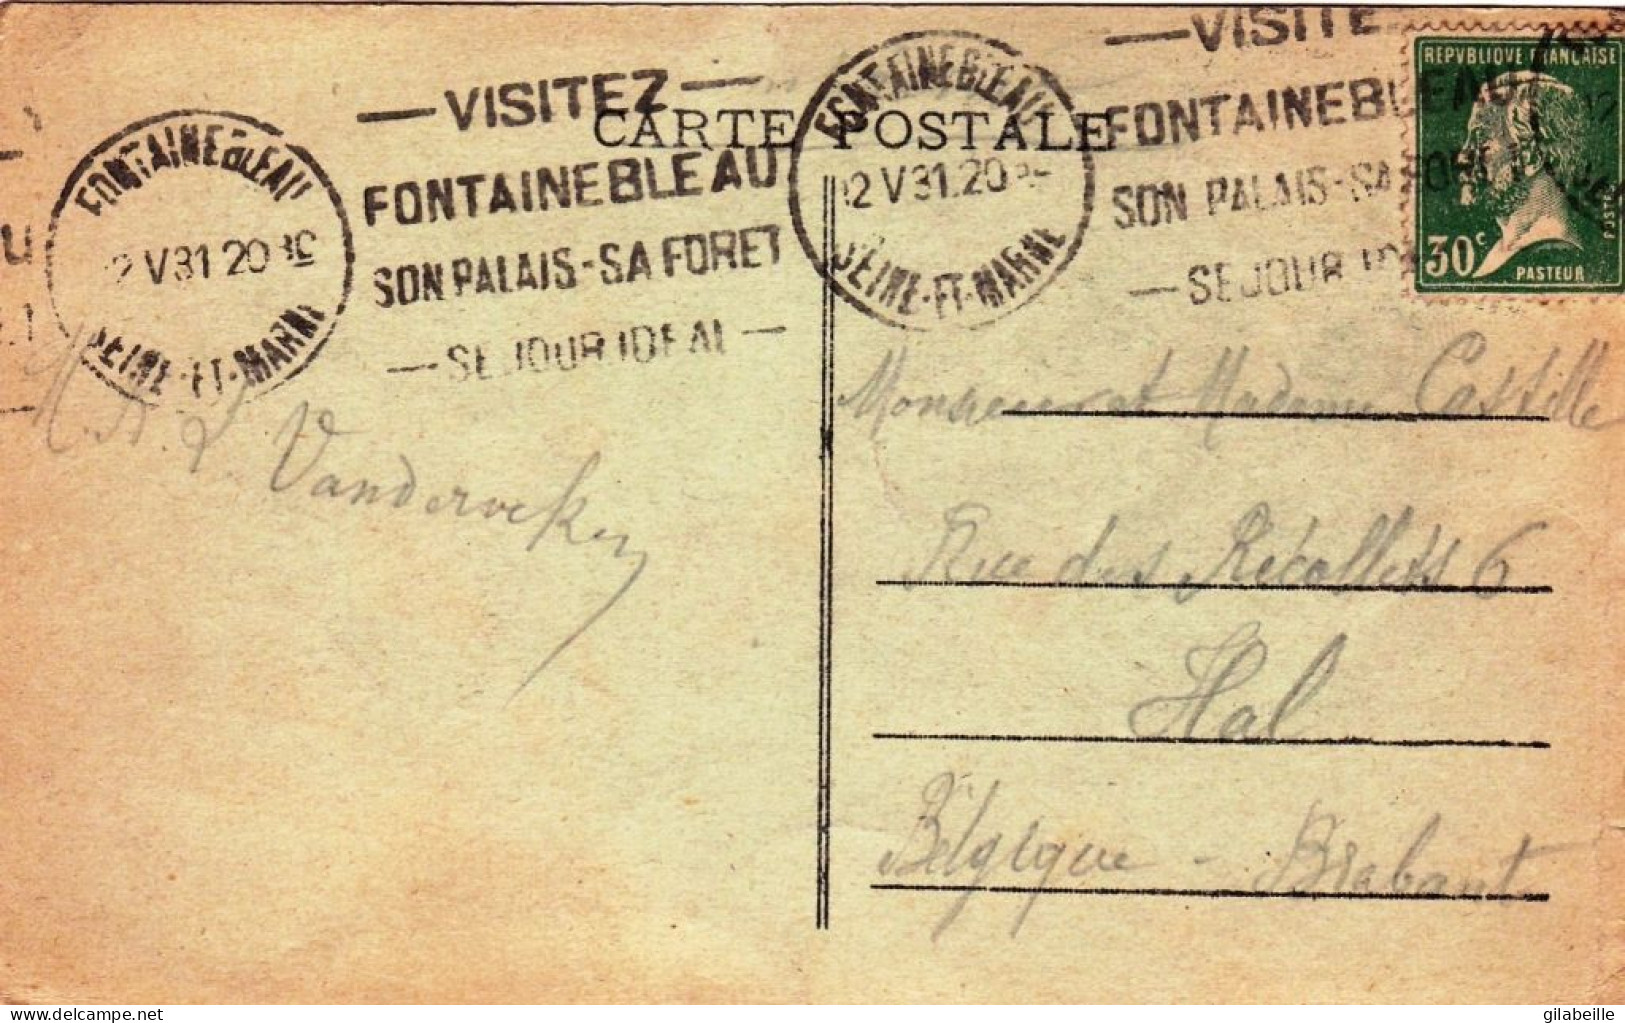 CARTE POSTALE
— VISITEZ —
FONTAINEBLEAU
SON PALAIS - SA FORET
— SEJOUR IDEAL —
FONTAINEBLEAU
2 V 31 20
SEINE-ET-MARNE
FONTAINEBLEAU
12 V 31 20
SEINE-ET-MARNE
— VISITE
FONTAINEBLEAU
SON PALAIS - SA FORE
— SEJOUR ID
REPVBLIQVE FRANÇAISE
POSTE
30c
PASTEUR
Vanderveken
Monsieur et Madame Castille
Rue des Récollets 6
Hal
Belgique - Brabant
delcampe.net
gilabeille